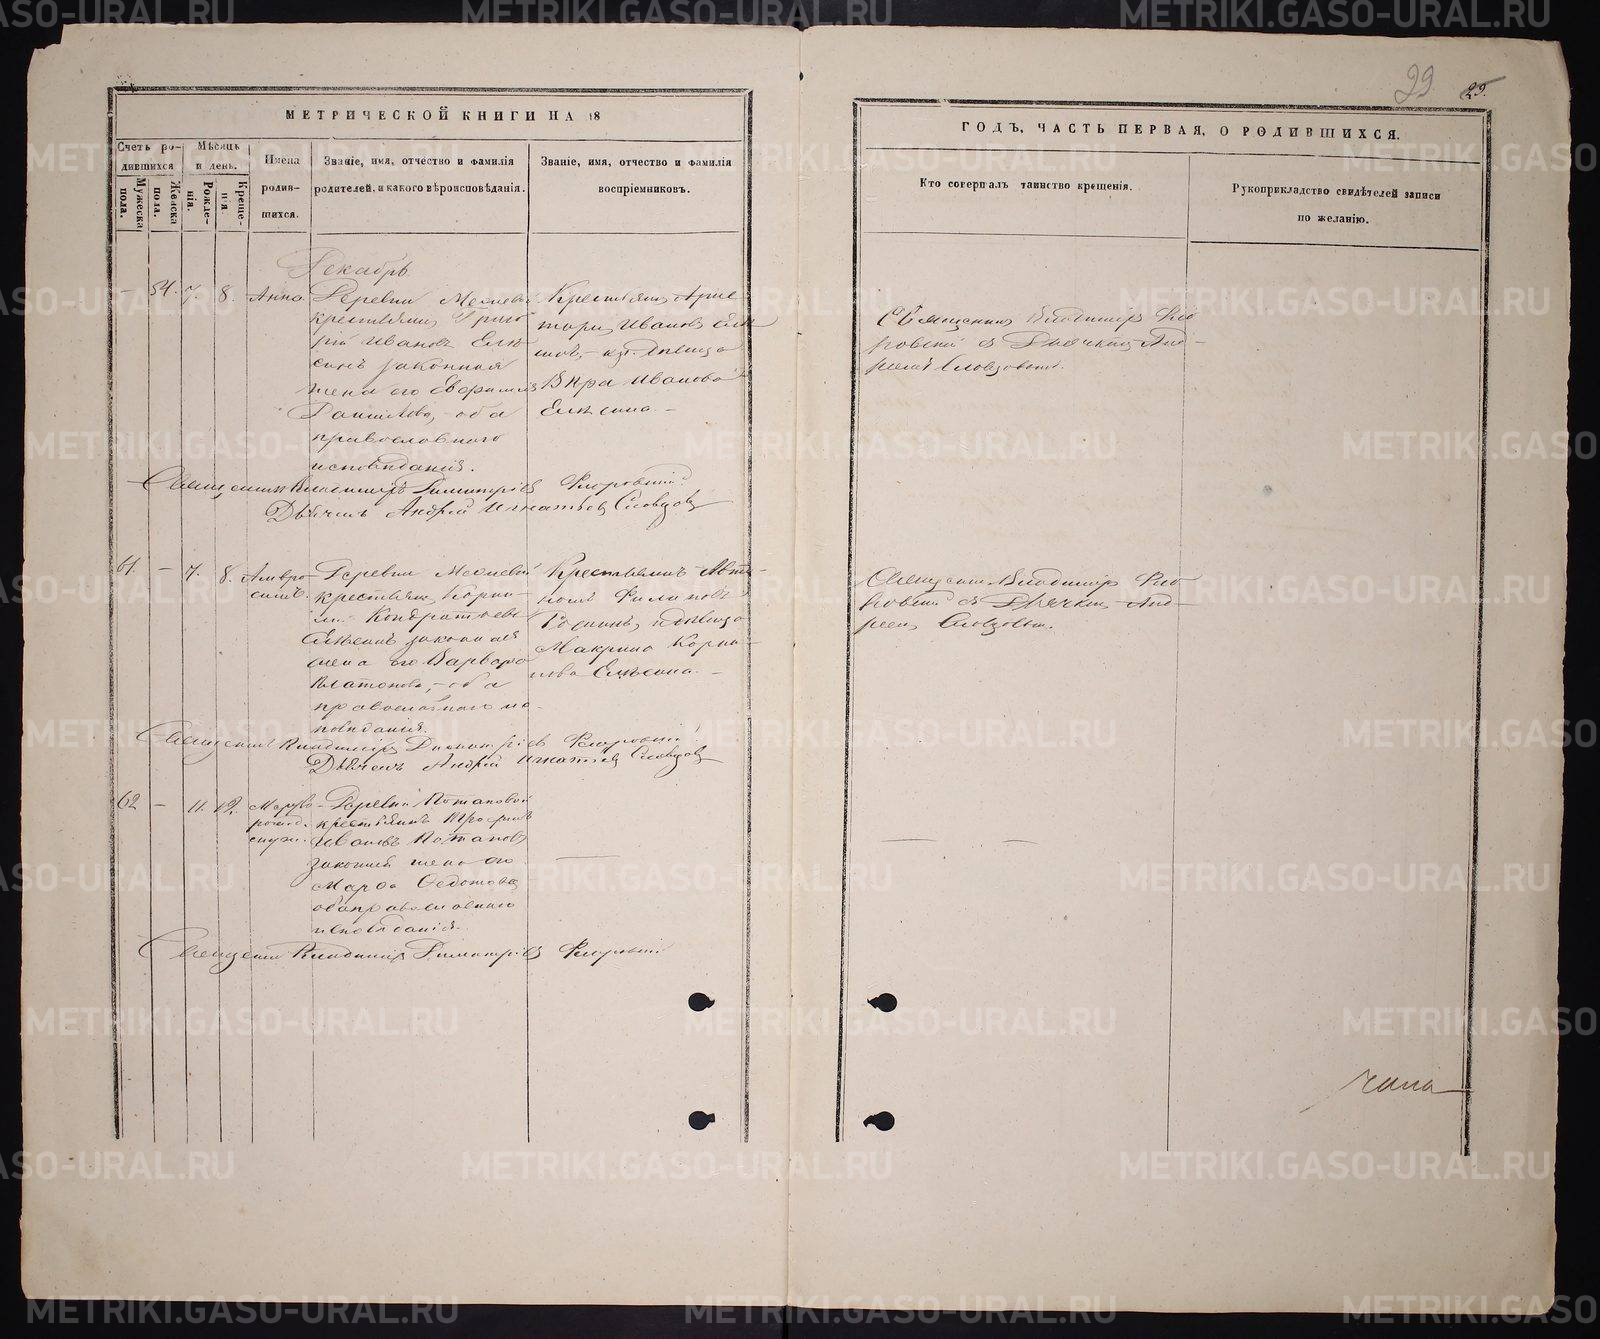 99 29.
МЕТРИЧЕСКОЙ КНИГИ НА 18
ГОДЪ, ЧАСТЬ ПЕРВАЯ, О РОДИВШИХСЯ.
Счетъ ро-
дившихся
Мужеска
пола.
Женска
пола.
Мѣсяцъ
и день.
Рожде-
нія.
Креще-
нія.
Имена
родив-
шихся.
Званіе, имя, отчество и фамилія
родителей, и какого вѣроисповѣданія.
Званіе, имя, отчество и фамилія
воспріемниковъ.
Кто совершалъ таинство крещенія.
Рукоприкладство свидѣтелей записи
по желанію.
Декабрь
– 54. 7. 8. Анна.
Деревни
крестьянинъ Григо-
рій Ивановъ Елѣ-
синъ законная
жена его
Данилова, – оба
православнаго
исповѣданія.
Крестьянинъ
Ивановъ Елѣ-
дѣвица
Вѣра Иванова
Елѣсина. –
Священникъ Владиміръ Фло-
ровскій съ Дьячкомъ Анд-
реемъ Словцовымъ.
Священникъ Владиміръ Димитріевъ Флоровскій
Дьячекъ Андрей Игнатьевъ Словцовъ
61. – 7. 8. Амвро-
сій.
Деревни
крестьянинъ Корни-
лій Кондратьевъ
Елѣсинъ законная
жена его Варвара
Платонова, – оба
православнаго ис-
повѣданія.
Крестьянинъ
Филиповъ
дѣвица
Макрина Корни-
лова Елѣсина. –
Священникъ Владиміръ Фло-
ровскій съ Дьячкомъ Анд-
реемъ Словцовымъ.
Священникъ Владиміръ Димитріевъ Флоровскій
Дьячекъ Андрей Игнатьевъ Словцовъ
62 – 11. 12. Мертво-
рожд.
Деревни Потаповой
крестьянинъ Трофимъ
Ивановъ Потаповъ
законная жена его
Марѳа Ѳедотова
оба православнаго
исповѣданія.
Священникъ Владиміръ Димитріевъ Флоровскій